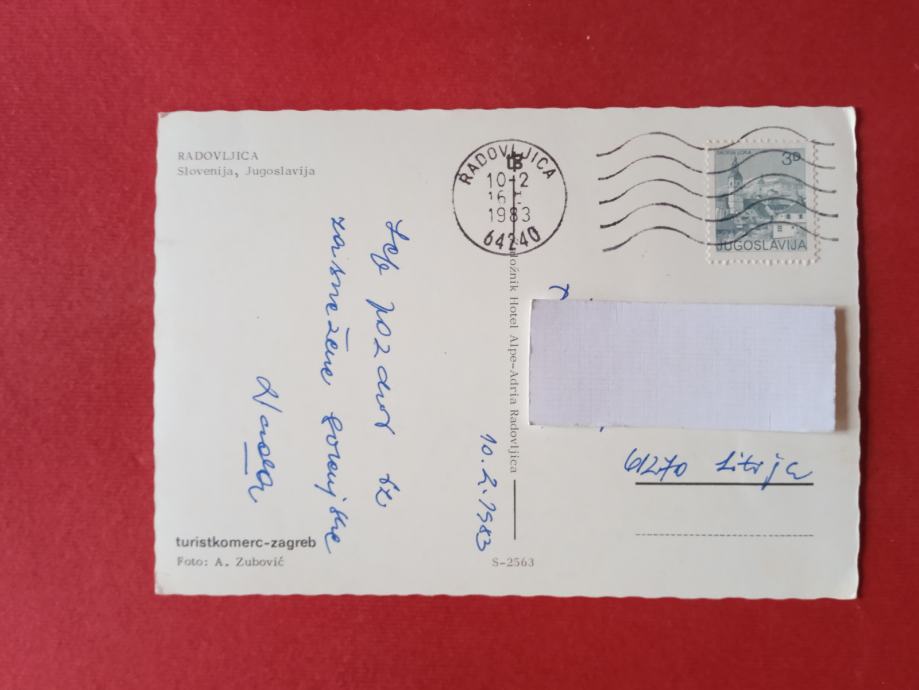 RADOVLJICA
Slovenija, Jugoslavija
RADOVLJICA
10-2
1983
64240
3
JUGOSLAVIJA
Lep pozdrav iz
zasnežene Gorenjske
10.2.1983
Hotel Alpe-Adria Radovljica
61270 Litija
turistkomerc-zagreb
Foto: A. Zubović
S-2563